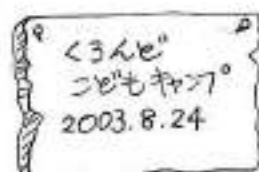 くろんど
こどもキャンプ
2003.8.24